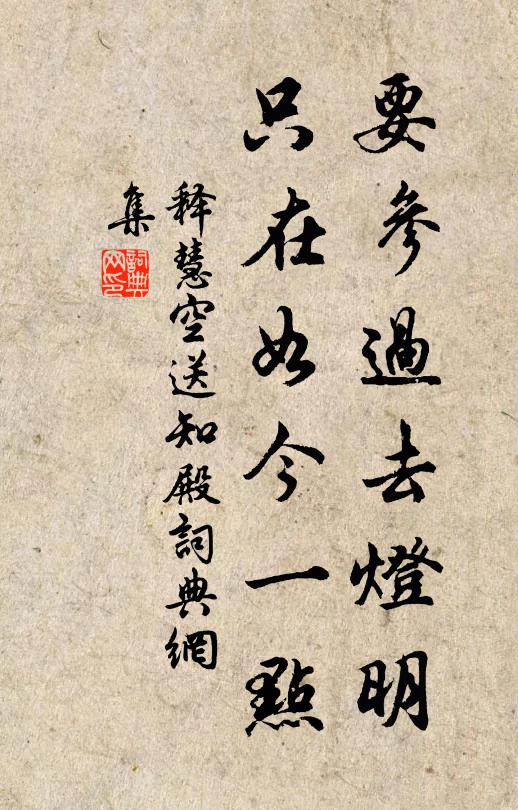 要參過去燈明
只在如今一點
释慧空送知殿詞典網
集
詞典網印